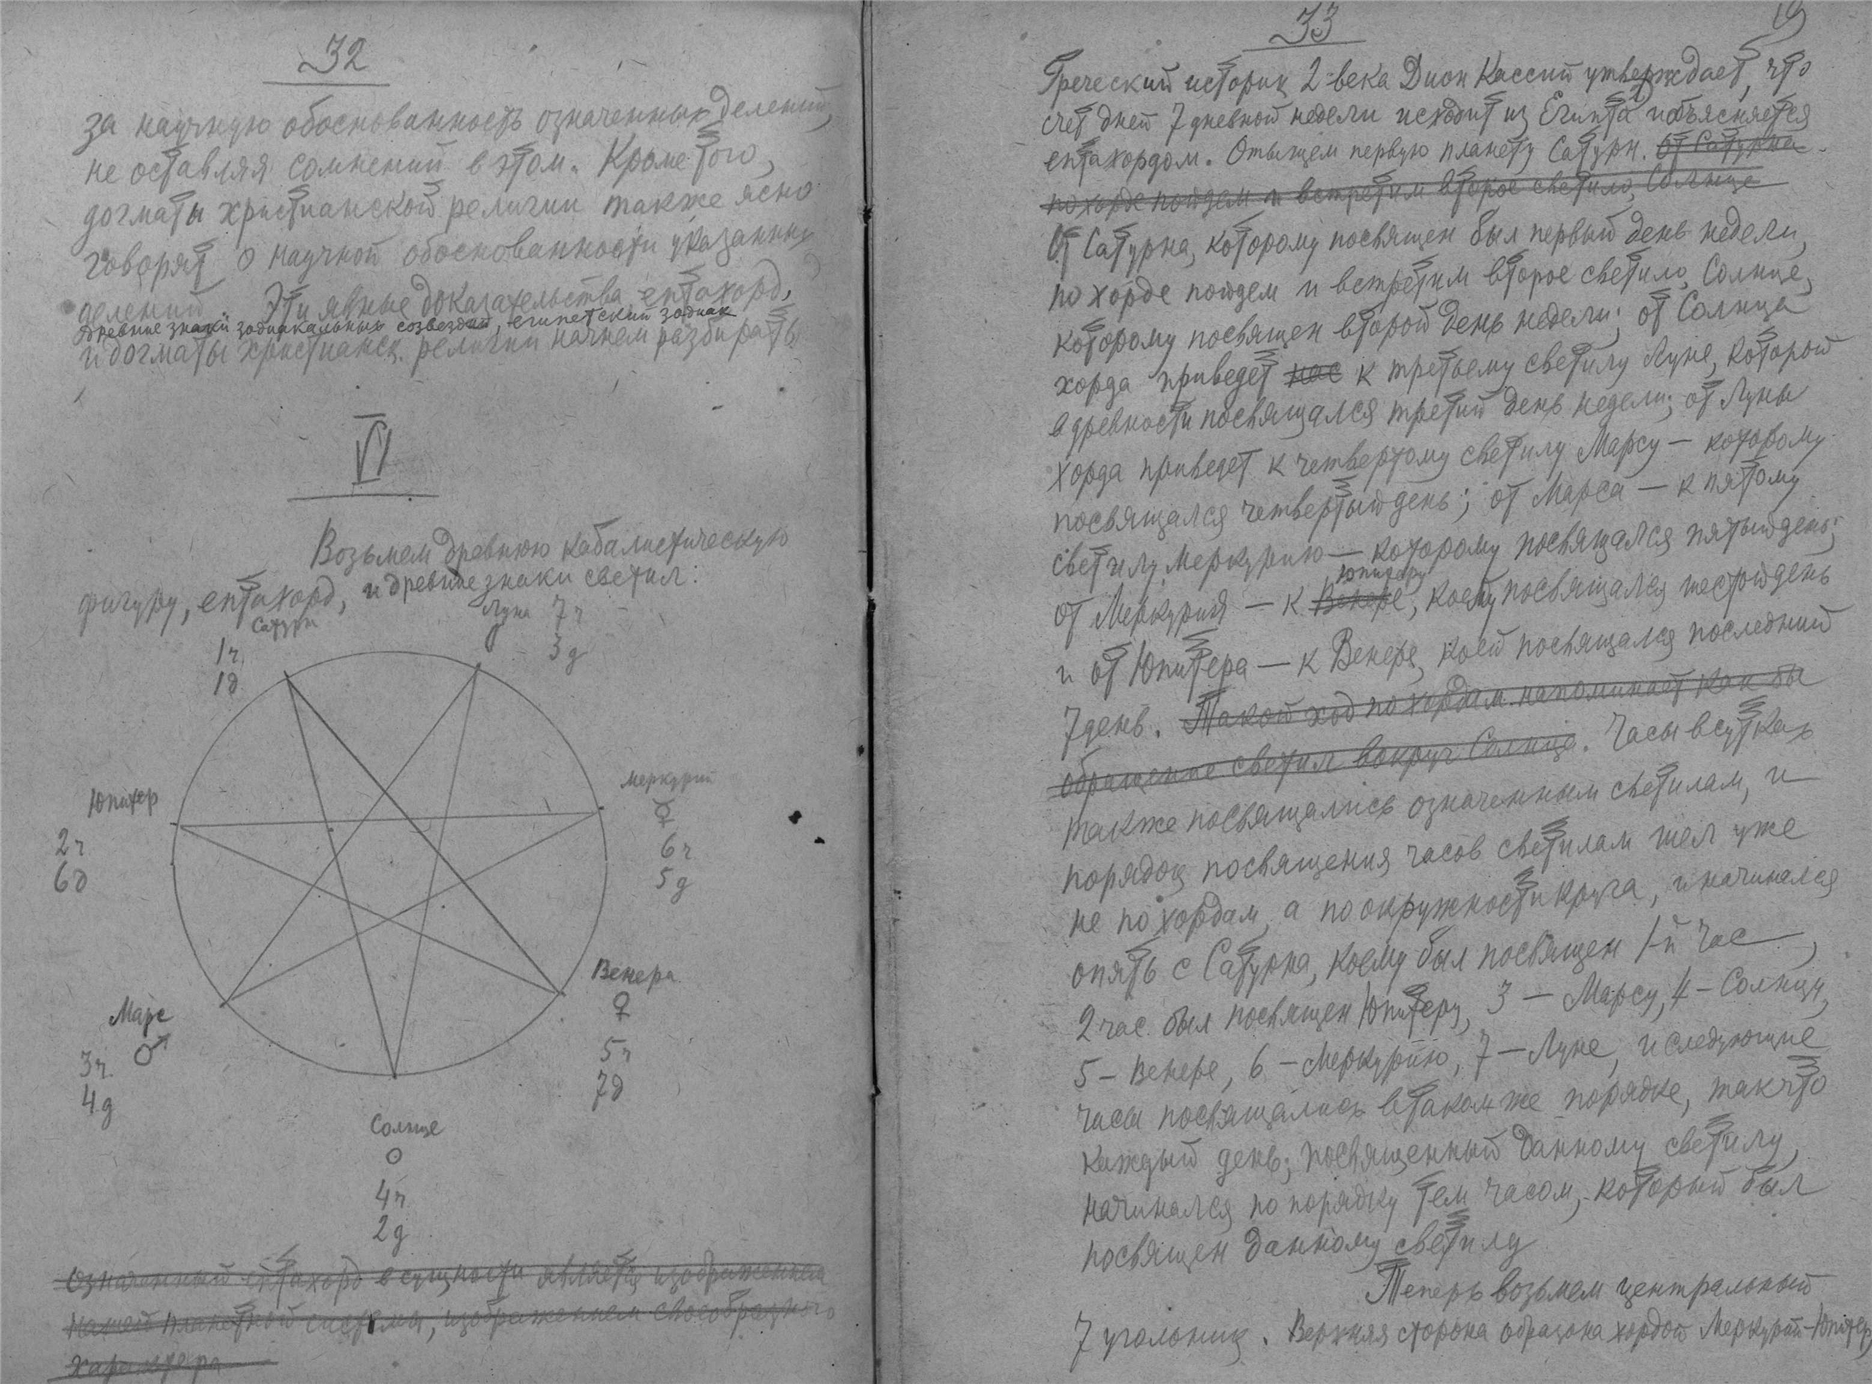 32
за научную обоснованность означенных делений,
не оставляя сомнений в этом. Кроме того,
догматы христианской религии также ясно
говорят о научной обоснованности указанных
делений. Эти явные доказательства, ептахорд,
древние знаки зодиакальных созвездий, египетский зодиак
и догматы христианск. религии начнем разбирать
VI
Возьмем древнюю кабалистическую
фигуру, ептахорд, и древние знаки светил:
Сатурн
1ч.
1д
Луна 7ч
3д
Юпитер
2ч
6д
Меркурий
☿
6ч
5д
Марс
♂
3ч.
4д
Венера
♀
5ч
7д
Солнце
○
4ч
2д
Означенный ептахорд в сущности является изображением
нашей планетной системы, изображением своеобразного
характера
33
19
Греческий историк 2 века Дион Кассий утверждает, что
счет дней 7 дневной недели исходит из Египта и объясняется
ептахордом. Отыщем первую планету Сатурн. От Сатурна
по хорде пойдем и встретим второе светило, Солнце
От Сатурна, которому посвящен был первый день недели,
по хорде пойдем и встретим второе светило, Солнце,
которому посвящен второй день недели; от Солнца
хорда приведет нас к третьему светилу Луне, которой
в древности посвящался третий день недели; от Луны
хорда приведет к четвертому светилу Марсу — которому
посвящался четвертый день; от Марса — к пятому
светилу, Меркурию — которому посвящался пятый день;
Юпитеру
от Меркурия — к Венере, коему посвящался шестой день
и от Юпитера — к Венере, коей посвящался последний
7 день. Такой ход по хордам напоминает как бы
обращение светил вокруг Солнца. Часы в сутках
также посвящались означенным светилам, и
порядок посвящения часов светилам шел уже
не по хордам, а по окружности круга, и начинался
опять с Сатурна, коему был посвящен 1-й час,
2 час был посвящен Юпитеру, 3 — Марсу, 4 – Солнцу,
5 – Венере, 6 – Меркурию, 7 – Луне, и следующие
часы посвящались в таком же порядке, так что
каждый день, посвященный данному светилу,
начинался по порядку тем часом, который был
посвящен данному светилу
Теперь возьмем центральный
7 угольник. Верхняя сторона образована хордой Меркурий–Юпитер,